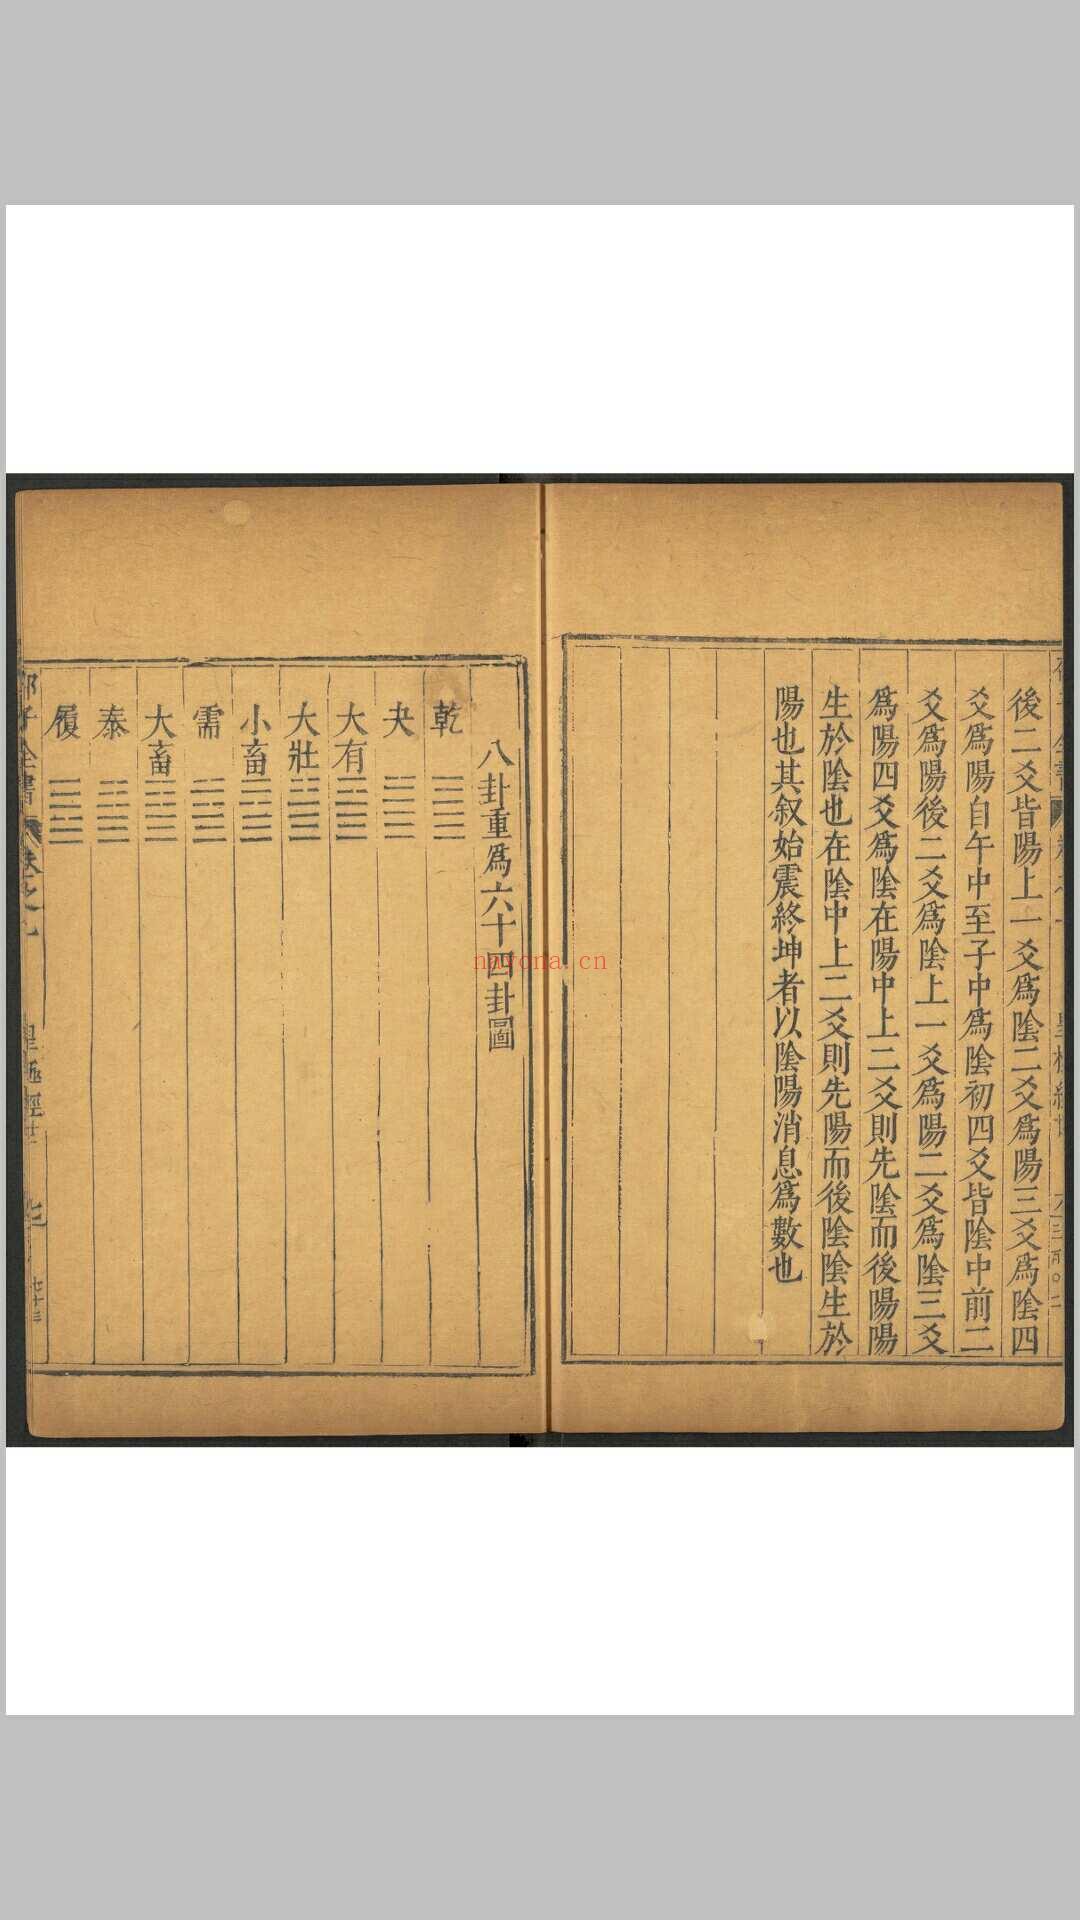 後二爻皆陽上一爻爲陰二爻爲陽三爻爲陰四
爻爲陽自午中至子中爲陰初四爻皆陰中前二
爻爲陽後二爻爲陰上一爻爲陽二爻爲陰三爻
爲陽四爻爲陰在陽中上二爻則先陰而後陽陽
生於陰也在陰中上二爻則先陽而後陰陰生於
陽也其叙始震終坤者以陰陽消息爲數也
八卦重爲六十四卦圖
乾
夬
大有
大壯
小畜
需
大畜
泰
履
子全書
皇極經世
七十三
nayona.cn